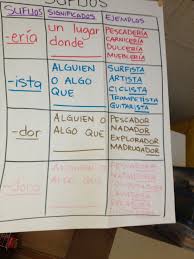 SUFIJOS
SUFIJOS SIGNIFICADOS EJEMPLOS
-ería un lugar donde
PESCADERÍA
CARNICERÍA
DULCERÍA
MUEBLERÍA
-ista ALGUIEN O ALGO QUE
SURFISTA
ARTISTA
CICLISTA
TROMPETISTA
GUITARISTA
-dor ALGUIEN O ALGO QUE
PESCADOR
NADADOR
EXPLORADOR
MADRUGADOR
-dora